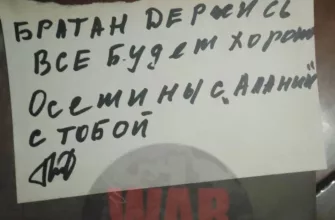 БРАТАН ДЕРЖИСЬ
ВСЕ Будет хорошо
Осетины с "Алании"
с ТОБОЙ
WAR